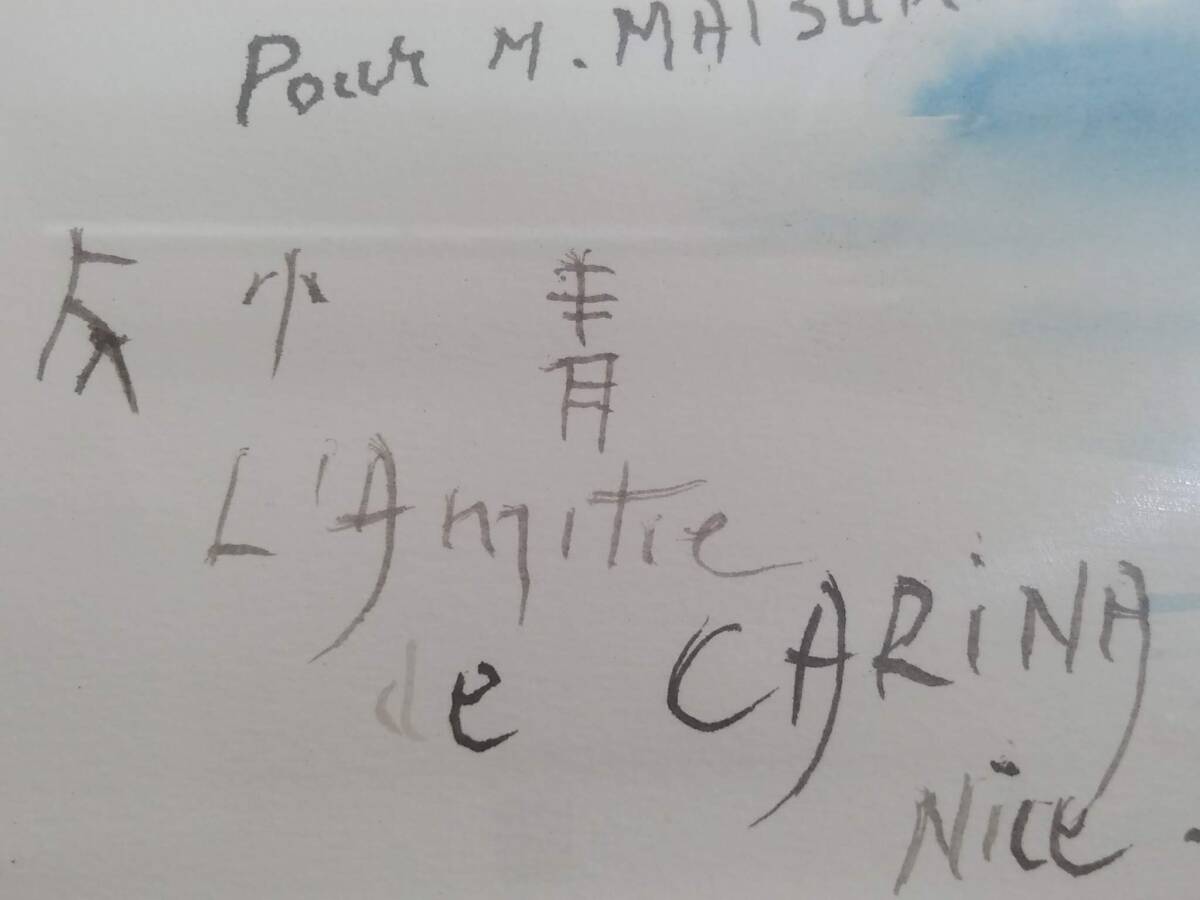 Pour M. MATSU
小 青
L'Amitie
de CARiNA
Nice.